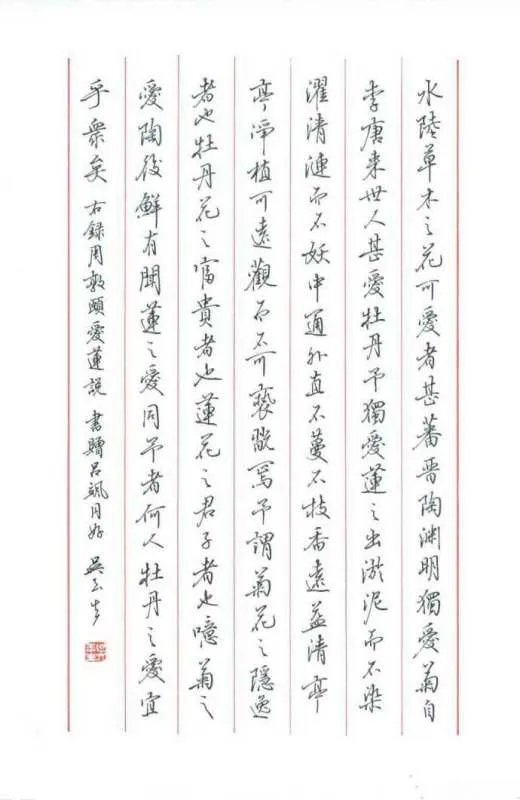 水陸草木之花可愛者甚蕃晋陶渊明獨愛菊自
李唐来世人甚愛牡丹予獨愛蓮之出淤泥而不染
濯清漣而不妖中通外直不蔓不枝香遠益清亭
亭淨植可遠觀而不可褻翫焉予謂菊花之隱逸
者也牡丹花之富貴者也蓮花之君子者也噫菊之
愛陶後鮮有聞蓮之愛同予者何人牡丹之愛宜
乎衆矣 右録周敦頤愛蓮説 書贈吕颯同好 吴玉生